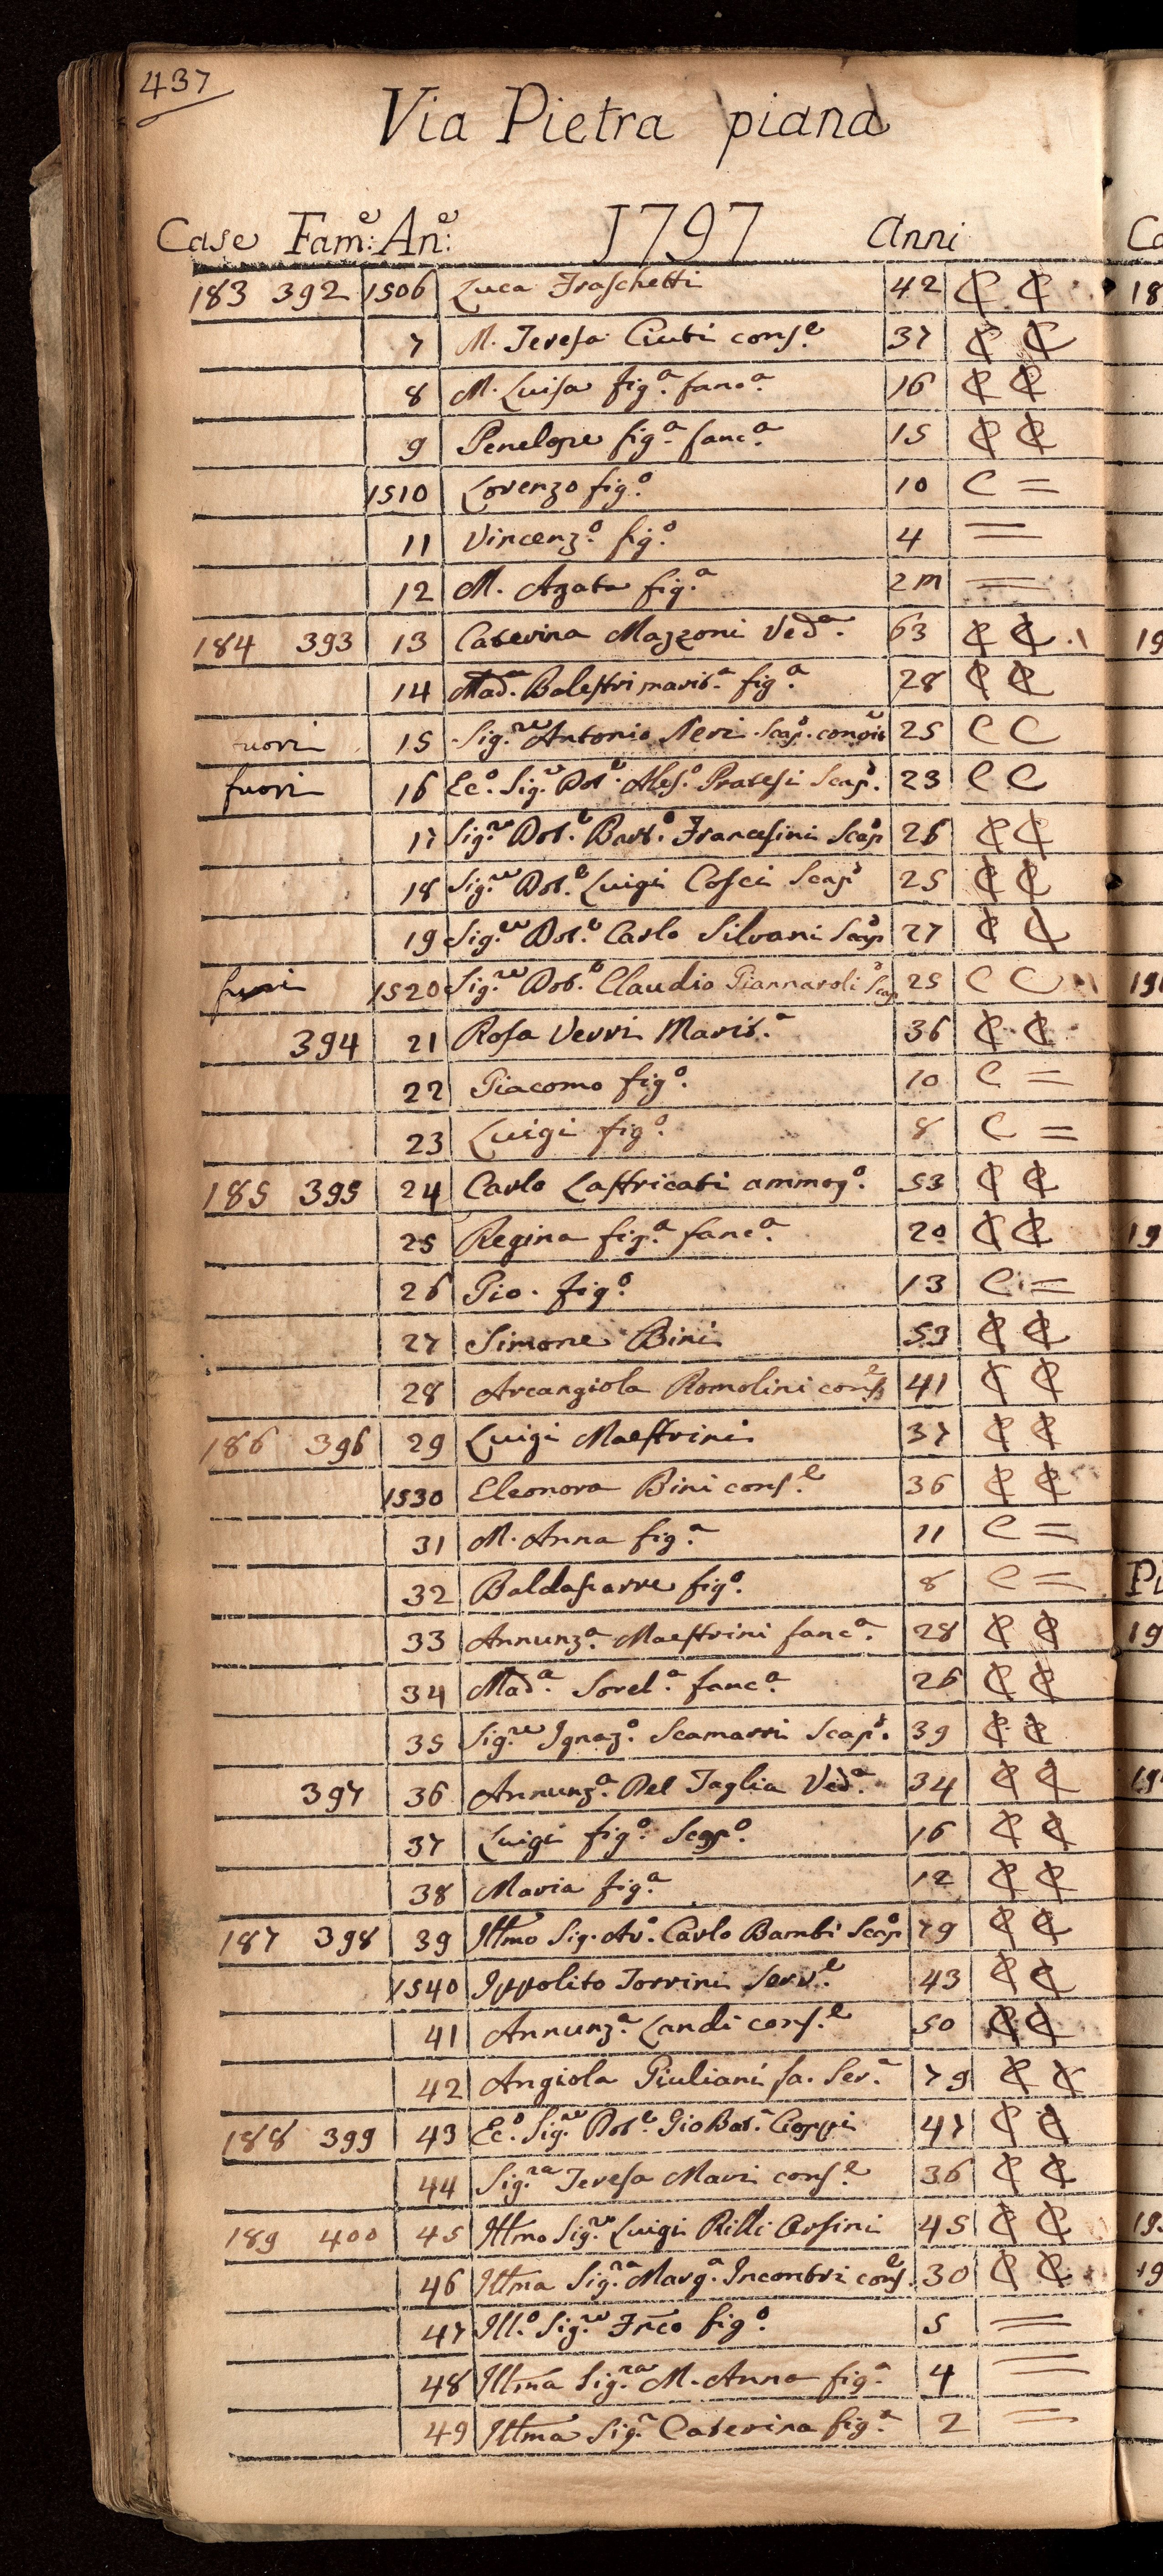 437
Via Pietra piana
Case Fam:e An:e 1797 Anni
183 392 1506 Luca Fraschetti 42 C C
7 M. Teresa Ciuti cons.e 37 C C
8 M. Luisa fig.a fanc.a 16 C C
9 Penelope fig.a fanc.a 15 C C
1510 Lorenzo fig.o 10 C =
11 Vincenz.o fig.o 4 =
12 M. Agata fig.a 2m =
184 393 13 Caterina Mazzoni Ved.a 63 C C
14 Mad.a Balestri marit.a fig.a 28 C C
fuori 15 Sig.re Antonio Neri Scap.o convit 25 C C
fuori 16 Ec.o Sig.e Dot.e Ales.o Pratesi Scap.o 23 C C
17 Sig.re Dot.e Bart.o Francesini Scap.o 26 C C
18 Sig.re Dot.e Luigi Cosci Scap.o 25 C C
19 Sig.re Dot.e Carlo Silvani Scap.o 27 C C
fuori 1520 Sig.re Dot.e Claudio Giannaroli Scap.o 25 C C
394 21 Rosa Verri Marit.a 36 C C
22 Giacomo fig.o 10 C =
23 Luigi fig.o 8 C =
185 395 24 Carlo Lastricati ammog.o 53 C C
25 Regina fig.a fanc.a 20 C C
26 Gio. fig.o 13 C =
27 Simone Bini 53 C C
28 Arcangiola Romolini cons.e 41 C C
186 396 29 Luigi Maestrini 37 C C
1530 Eleonora Bini cons.e 36 C C
31 M. Anna fig.a 11 C =
32 Baldasarre fig.o 8 C =
33 Annunz.a Maestrini fanc.a 28 C C
34 Mad.a Sorel.a fanc.a 26 C C
35 Sig.re Ignaz.o Scamarri Scap.o 39 C C
397 36 Annunz.a Del Taglia Ved.a 34 C C
37 Luigi fig.o Scap.o 16 C C
38 Maria fig.a 12 C C
187 398 39 Illmo Sig. Av.o Carlo Bambi Scap.o 79 C C
1540 Ippolito Torrini Serv.e 43 C C
41 Annunz.a Landi cons.e 50 C C
42 Angiola Giuliani fa. Ser.a 79 C C
188 399 43 Ec.o Sig.re Dot.e Gio Bat.a Cioppi 47 C C
44 Sig.ra Teresa Mari cons.e 36 C C
189 400 45 Illmo Sig.re Luigi Rilli Orsini 45 C C
46 Illma Sig.ra Marg.a Incontri cons.e 30 C C
47 Ill.o Sig.re Frco fig.o 5 =
48 Illma Sig.ra M. Anna fig.a 4 =
49 Illma Sig.a Caterina fig.a 2 =